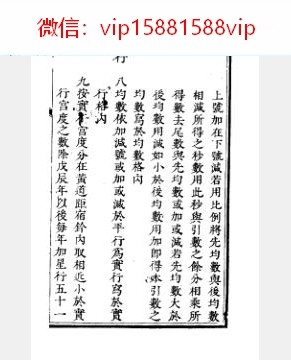 微信：vip15881588vip
行
上號加在下號減若用比例將先均數與後均數
相減所得之秒數用此秒與引數之餘分相乘所
得數去尾數與先均數或加或減若先均數大於
後均數用減如小於後均數用加即得本引數之
均數寫於均數格內
八均數依加減號或加或減於平行爲實行寫於實
行格內
九按實行宮度分在黃道距宿鈐內取相近小於實
行宮度之數除戊辰年以後每年加星行五十一